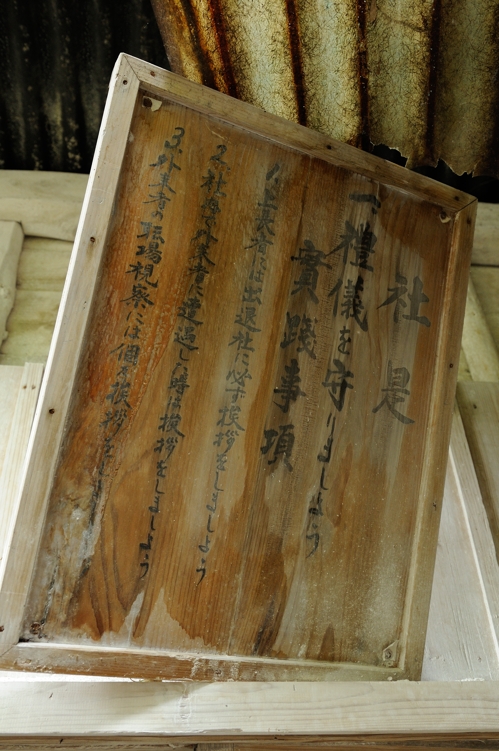 社是
一、禮儀を守りましよう
實踐事項
1.上長者には出退社に必ず挨拶をしましよう
2.社内で外来者に遭遇した時は挨拶をしましよう
3.外来者の職場視察には個々挨拶をしましよう